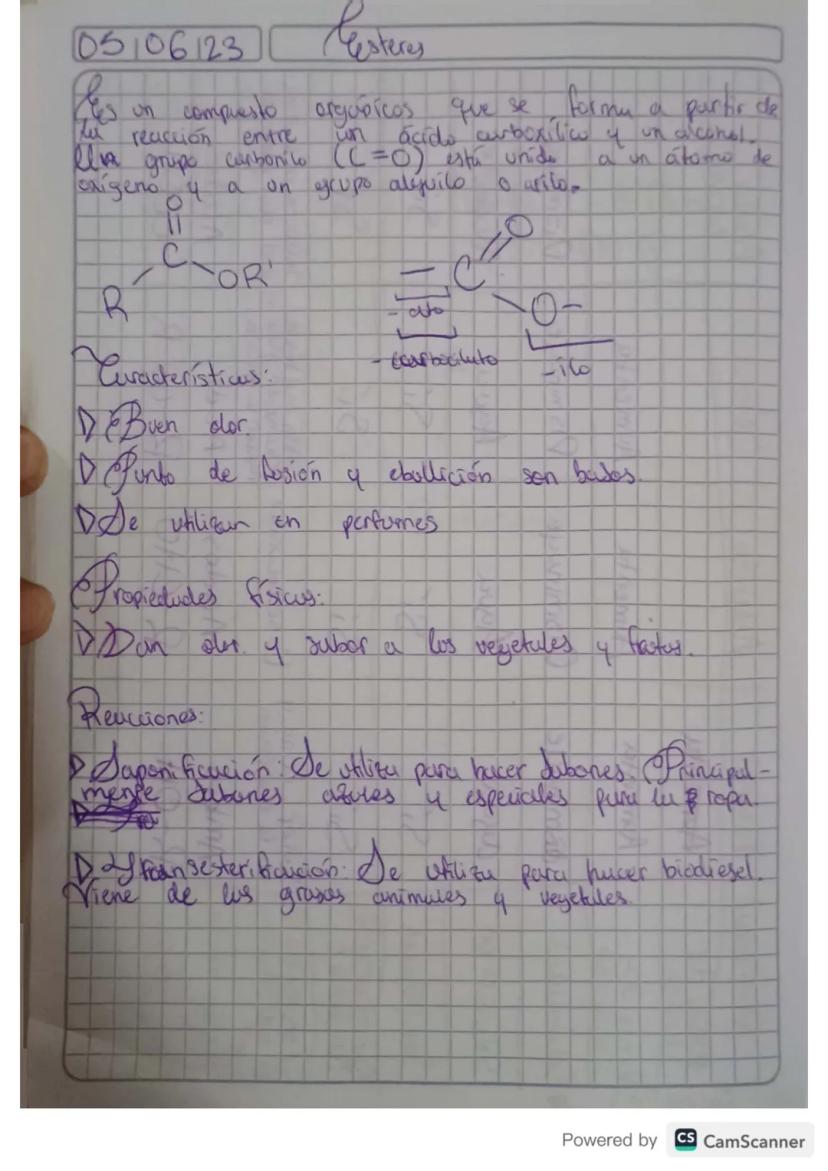 05/06/23 Esteres
Es un compuesto orgánicos que se forma a partir de
la reacción entre un ácido carboxílico y un alcohol.
Un grupo carbonilo (C=O) está unido a un átomo de
oxígeno y a un grupo alquilo o arilo.
O
C
R OR'
O
C
O-
- ato
-ilo
Características:
Buen olor.
Punto de fusión y ebullición son bajos.
Se utilizan en perfumes
Propiedades físicas:
Dan olor y sabor a los vegetales y frutas.
Reacciones:
Saponificación: Se utiliza para hacer jabones. Principal-
mente jabones azules y especiales para la ropa.
Transesterificación: Se utiliza para hacer biodiesel.
Viene de las grasas animales y vegetales.
Powered by CS CamScanner